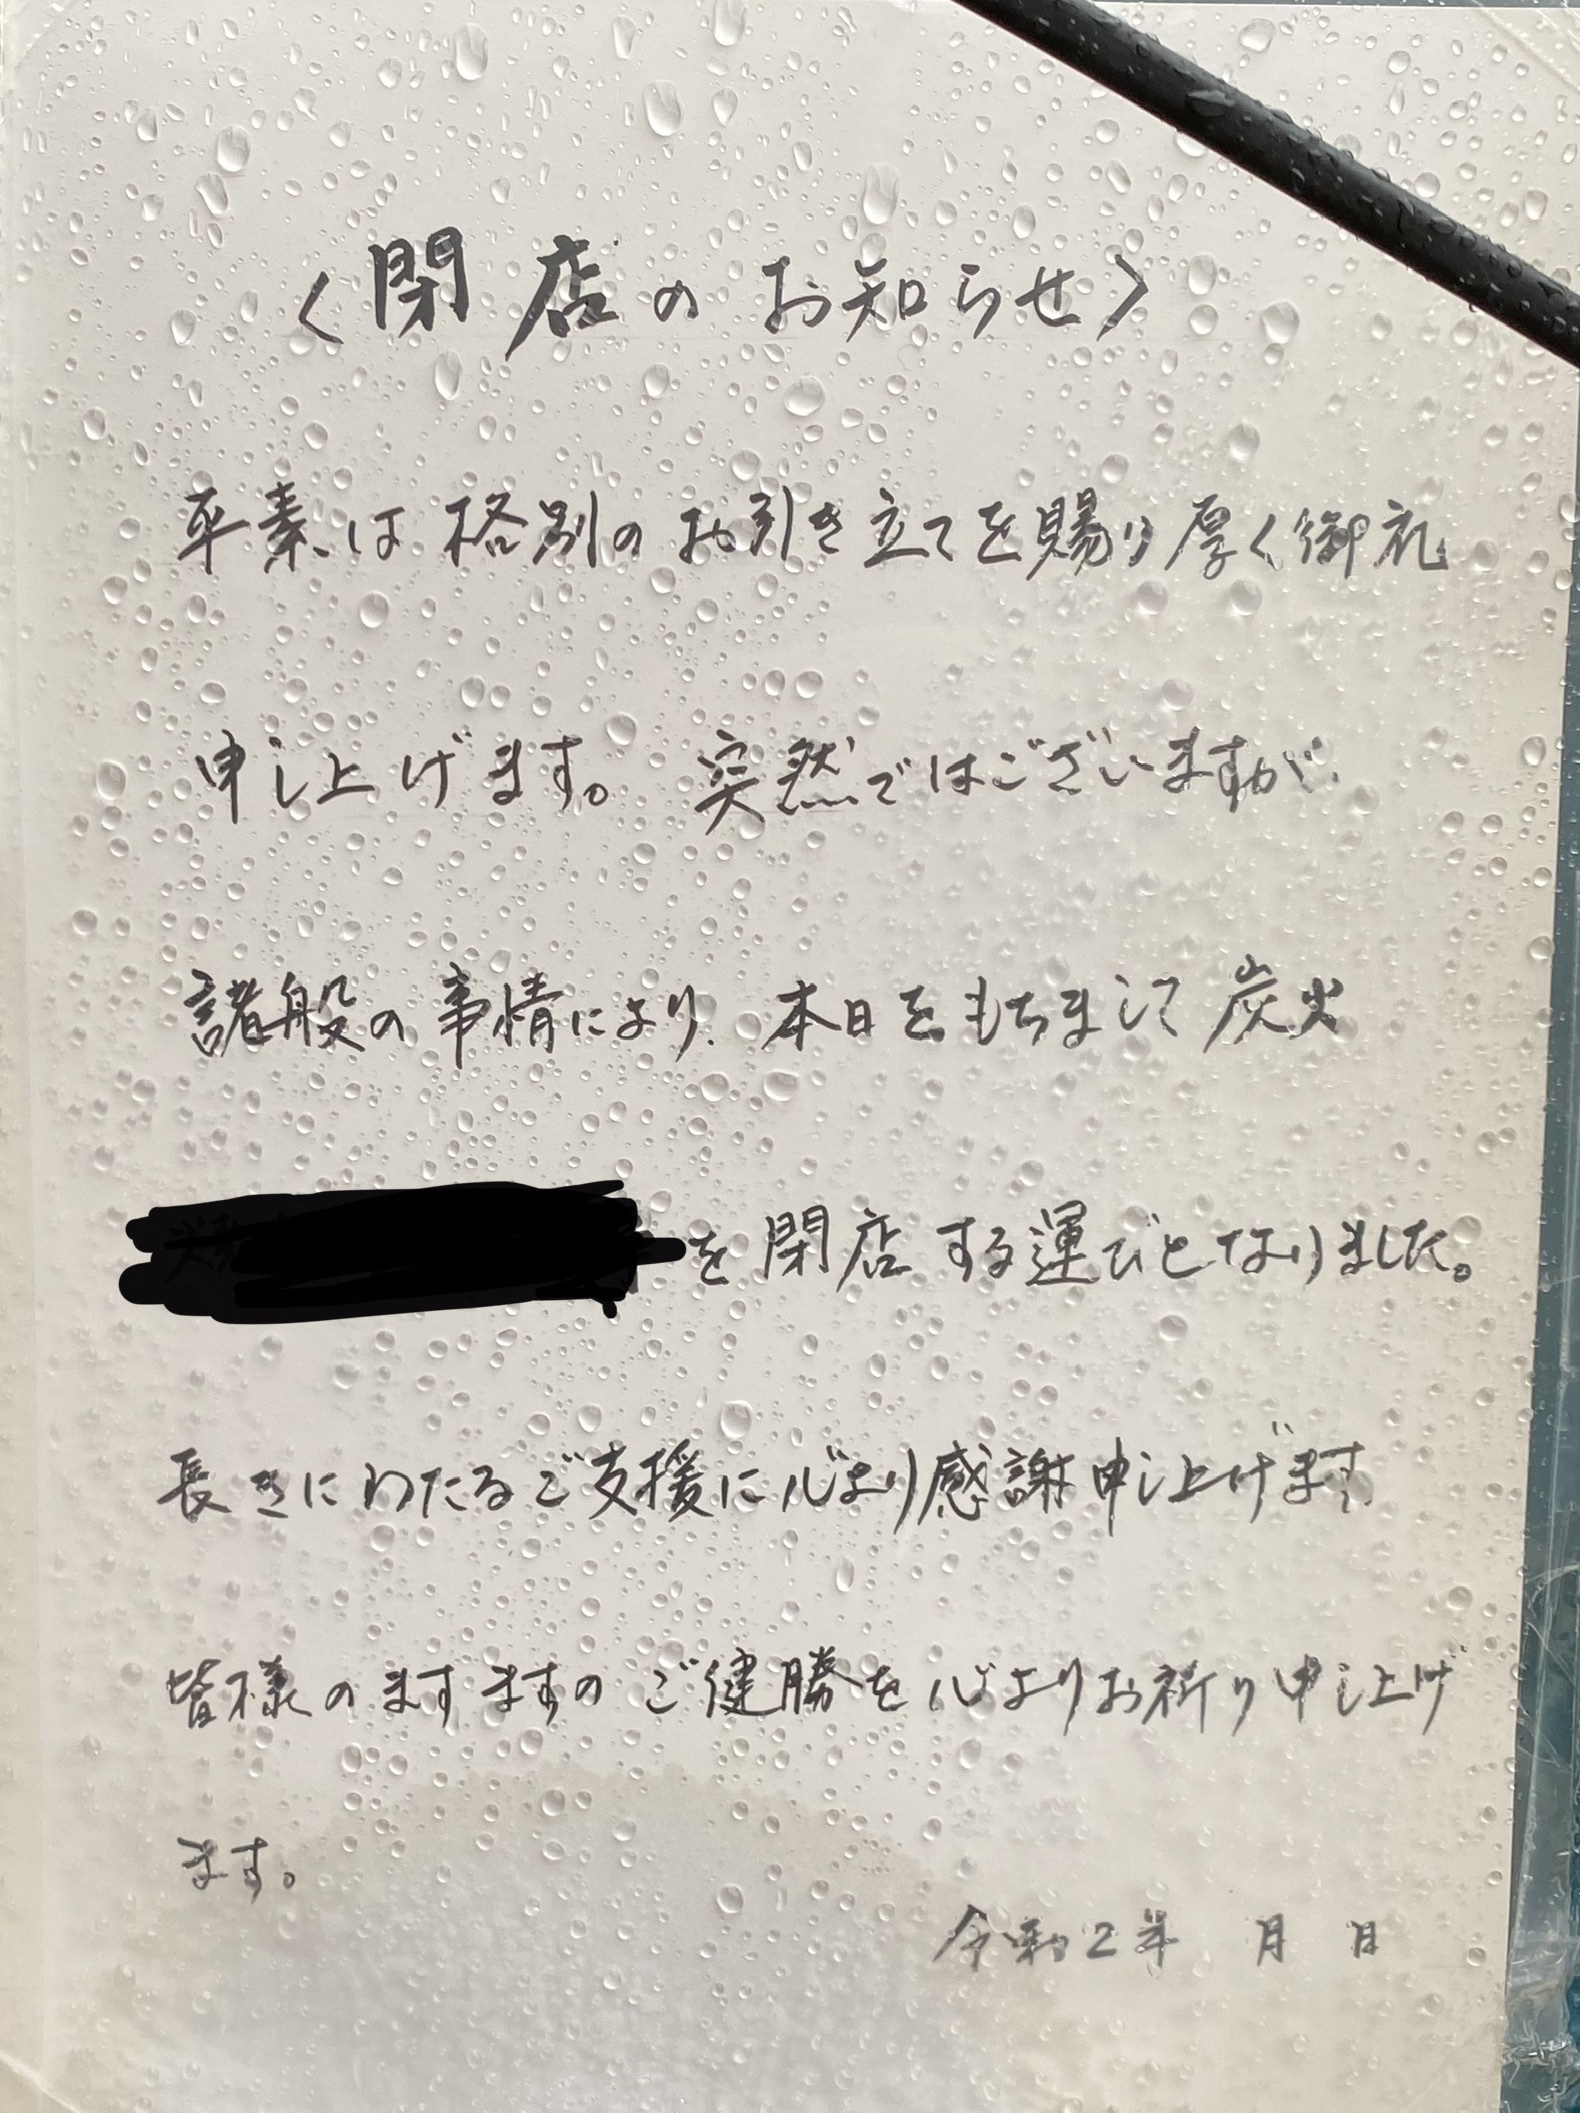 〈閉店のお知らせ〉
平素は格別のお引き立てを賜り厚く御礼
申し上げます。突然ではございますが、
諸般の事情により、本日をもちまして炭火
を閉店する運びとなりました。
長きにわたるご支援に心より感謝申し上げます
皆様のますますのご健勝を心よりお祈り申し上げ
ます。
令和2年 月 日